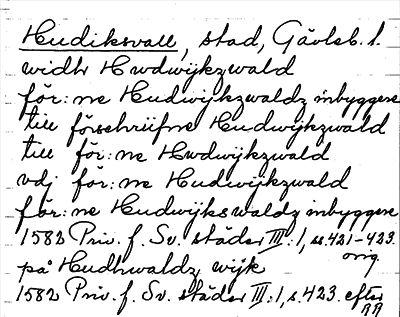 Hudiksvall, stad, Gävleb. l.
widh Hwdwijkzwald
för:ne Hudwijkzwaldz inbyggere
till förschriifne Hudwijkzwald
till för:ne Hwdwijkzwald
vdj för:ne Hudwijkzwald
för:ne Hudwijkswaldz inbyggere
1582 Priv. f. Sv. städer III:1, ss. 421-423.
orig.
på Hudhwaldz wijk
1582 Priv. f. Sv. städer III:1, s. 423. efter
RR